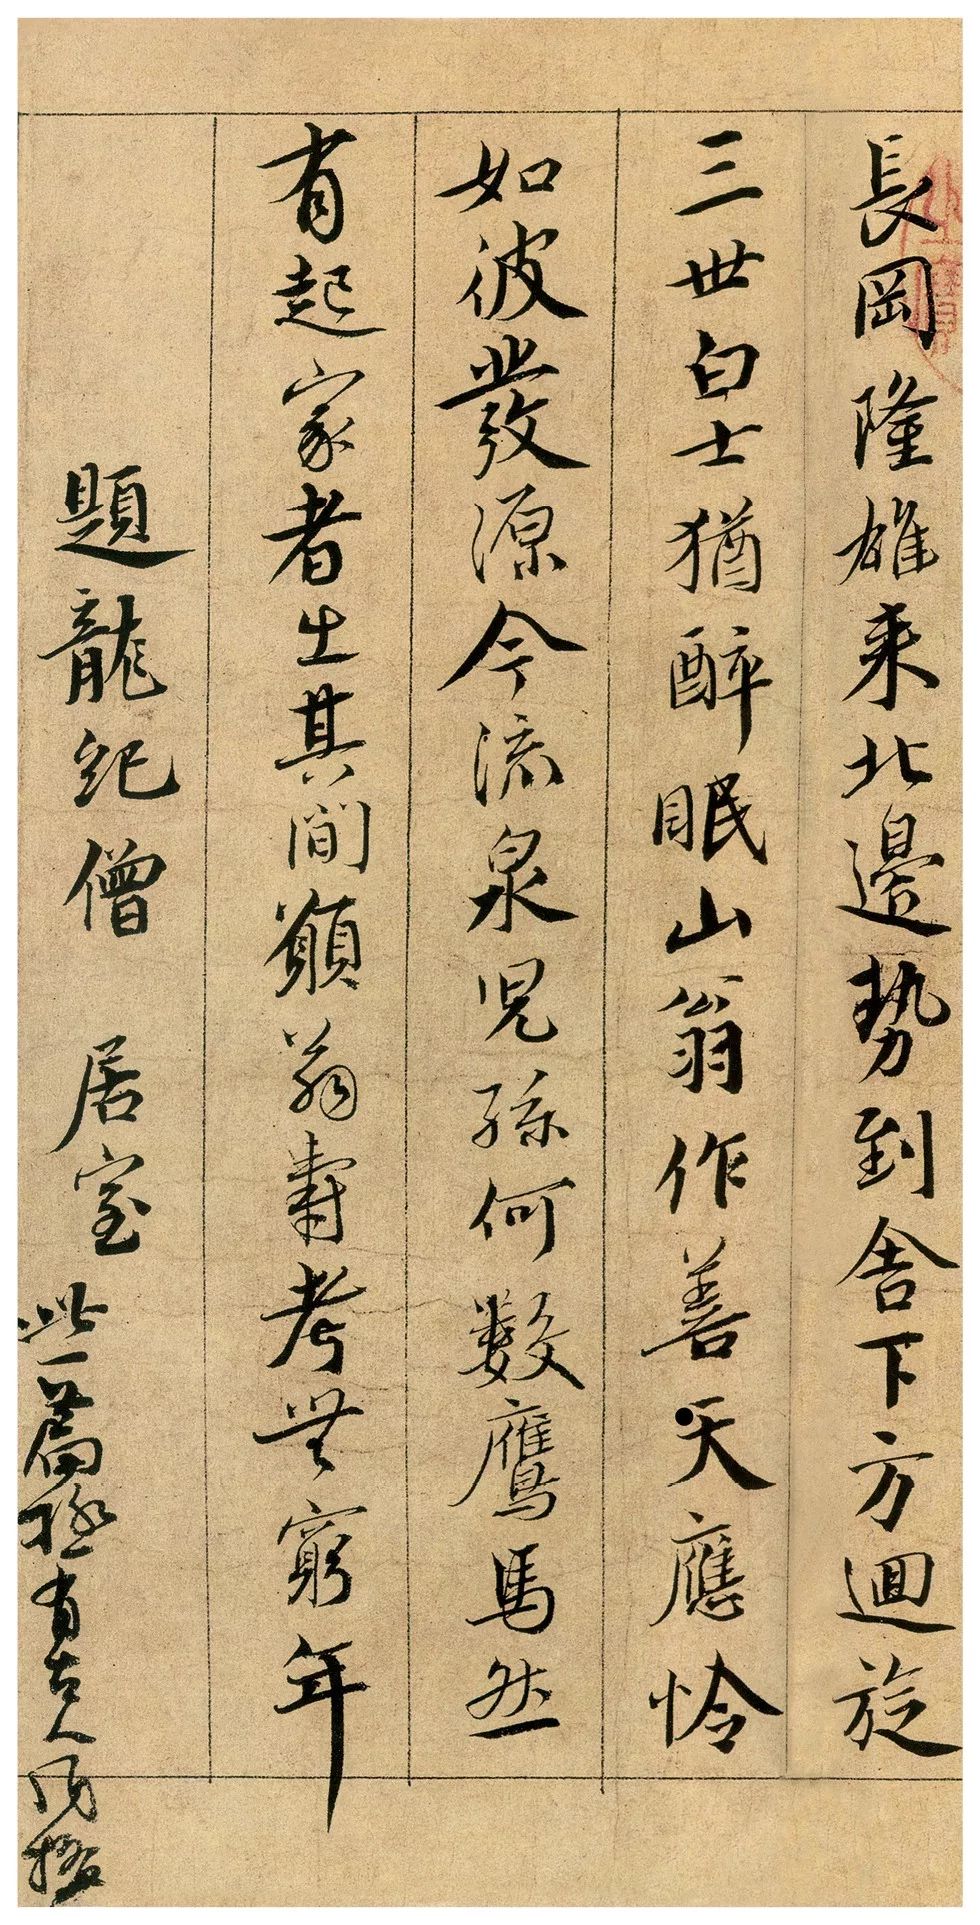 長岡隆雄来北邊勢到舎下方迴旋
三世白士猶醉眠山翁作善天應怜
如彼發源今流泉児孫何數鷹馬然
有起家者出其間願翁壽考無窮年
題龍紀僧 居室
此一篇極有古人